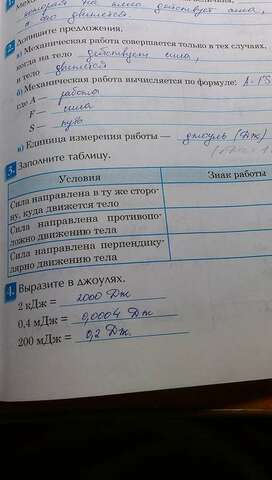 на тело действует сила,
движется.
2. Допишите предложения.
а) Механическая работа совершается только в тех случаях,
когда на тело действует сила,
и тело движется
б) Механическая работа вычисляется по формуле: A=FS
где A — работа
F — сила
S — путь
в) Единица измерения работы — джоуль (Дж)
3. Заполните таблицу.
Условия Знак работы
Сила направлена в ту же сторо-
ну, куда движется тело
Сила направлена противопо-
ложно движению тела
Сила направлена перпендику-
лярно движению тела
4. Выразите в джоулях.
2 кДж = 2000 Дж
0,4 мДж = 0,0004 Дж
200 мДж = 0,2 Дж